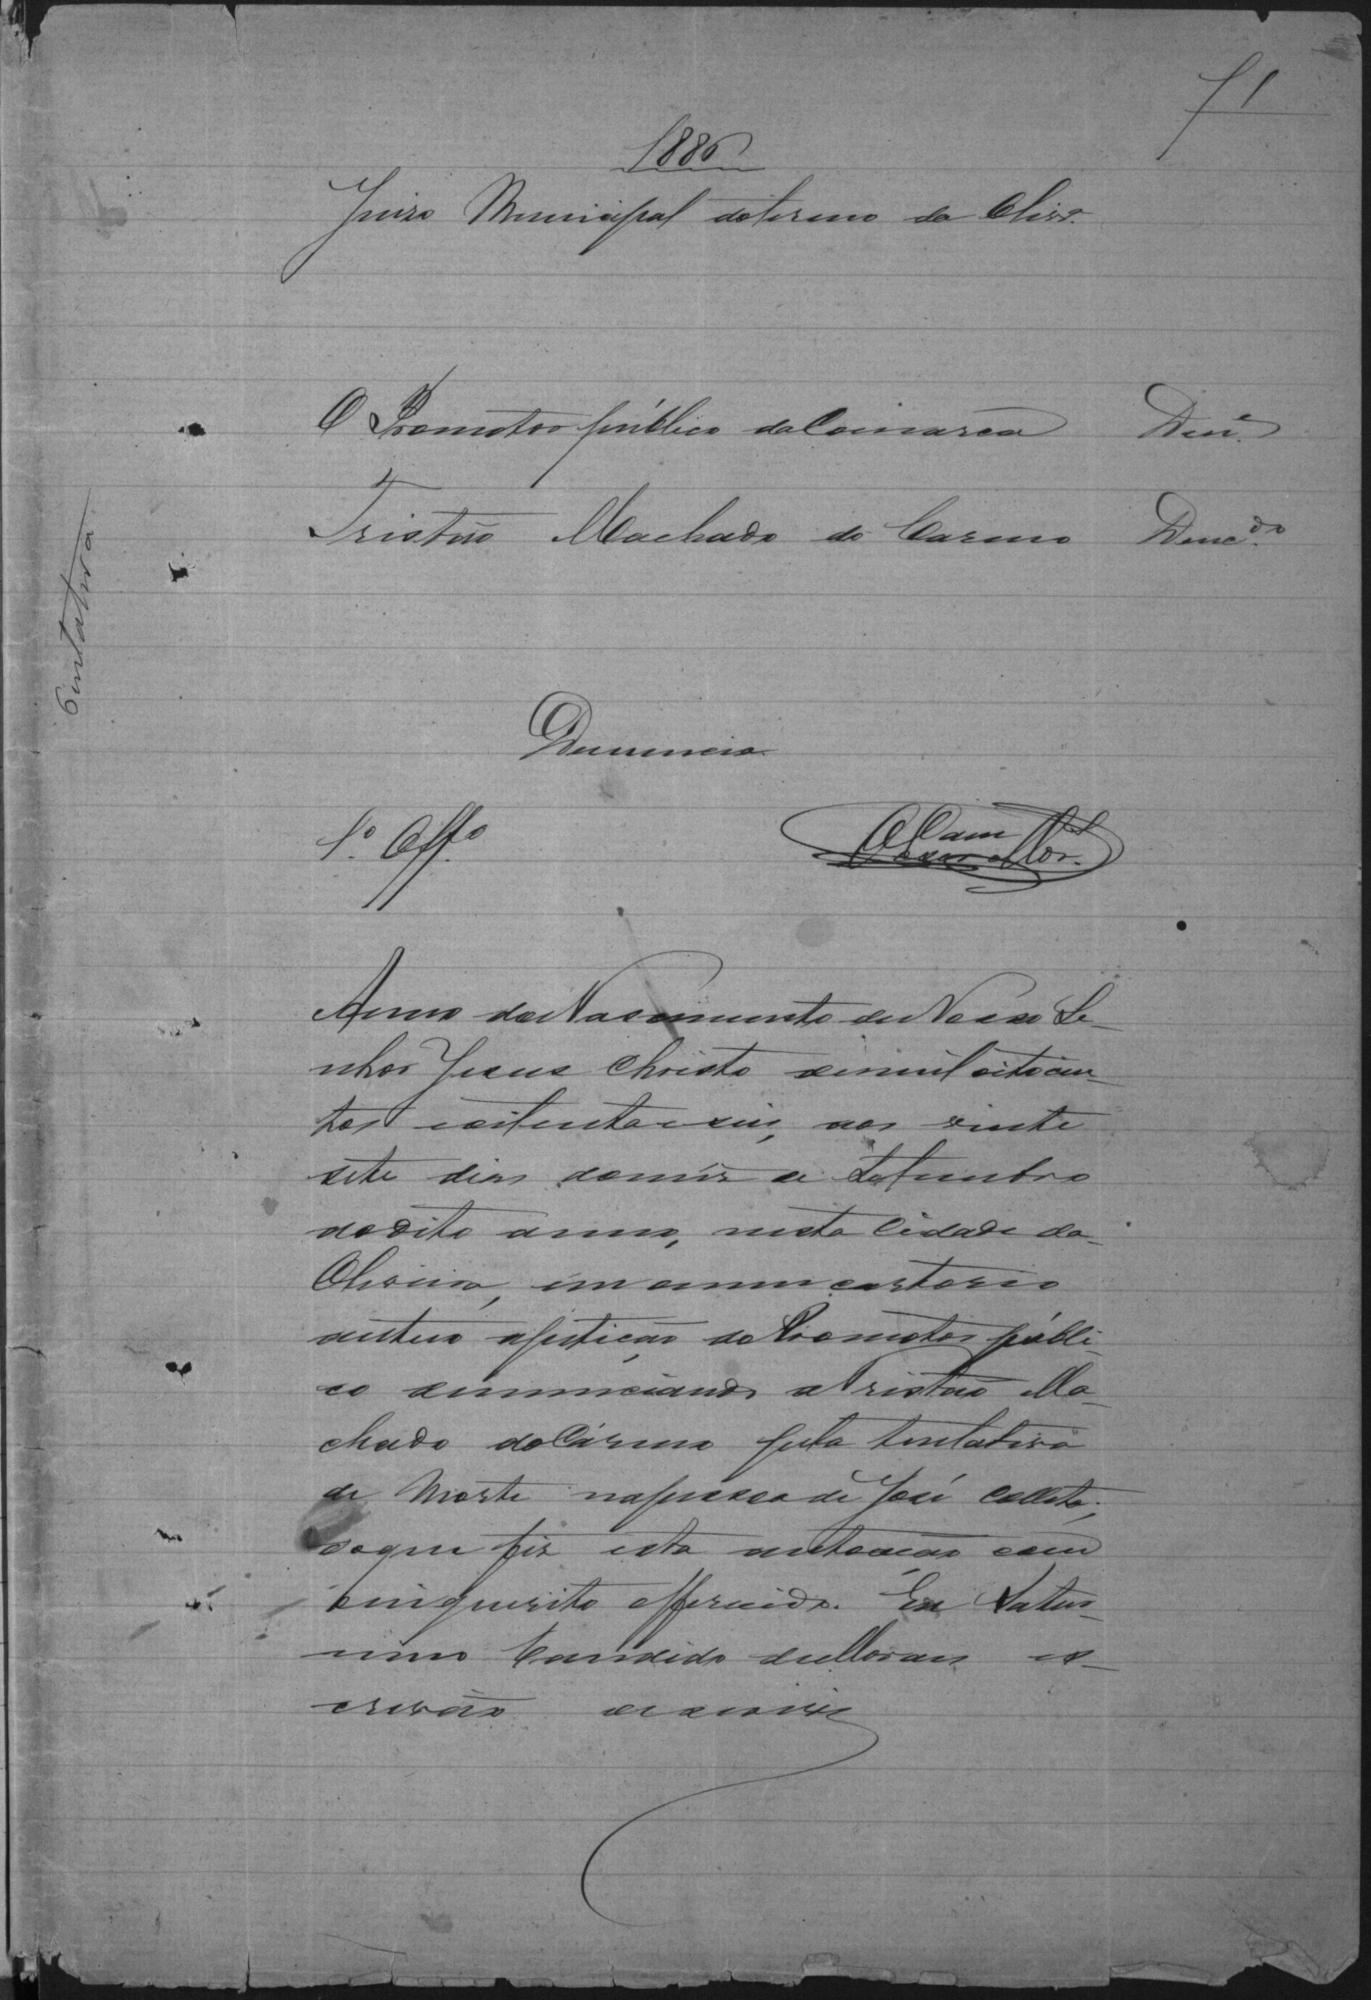 f 1
1886
Juizo Municipal do termo da Olivrª
O Promotor público da Comarca Den.e
Tristão Machado do Carmo Denc.do
Tentativa
Denuncia
1.º Off.º
Anno do Nascimento de Nosso Se-
nhor Jesus Christo de mil oitocen-
tos e oitenta e seis, aos vinte
sete dias do mês de Setembro
do dito anno, nesta Cidade da
Oliveira, em o meu cartorio
autuo a petição do Promotor públi-
co denunciando a Tristão Ma-
chado do Cármo pela tentativa
de Morte na pessoa de José Calisto;
do que fiz esta autoação com
o inquerito offerecido. Eu Satur-
nino Candido de Moraes es-
crivão o escrevi